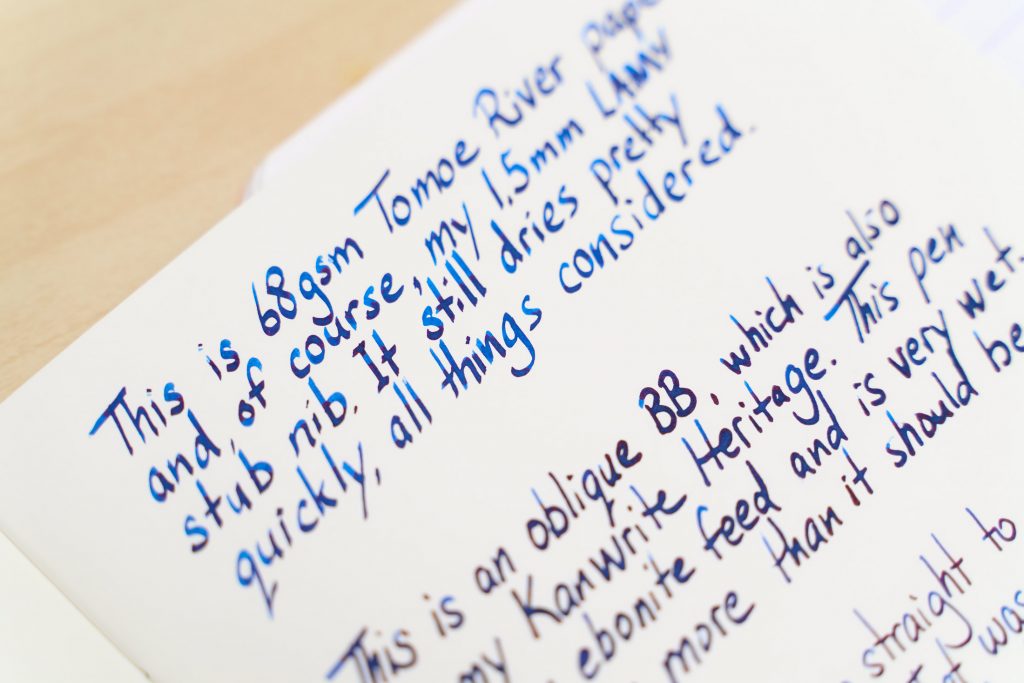 This is 68gsm Tomoe River pape
and, of course, my 1.5mm LAMY
stub nib. It still dries pretty
quickly, all things considered.
This is an oblique BB, which is also
my KanWrite Heritage. This pen
ebonite feed and is very wet.
more than it should be
straight to
was